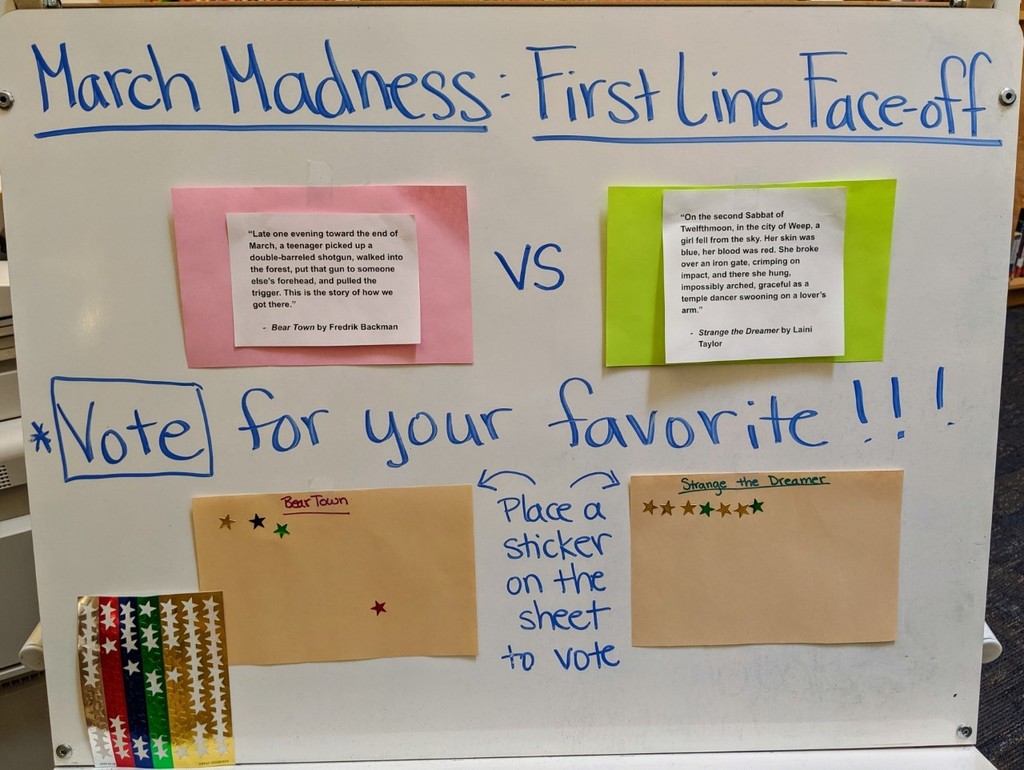 March Madness: First Line Face-off
"Late one evening toward the end of
March, a teenager picked up a
double-barreled shotgun, walked into
the forest, put that gun to someone
else's forehead, and pulled the
trigger. This is the story of how we
got there."
- Bear Town by Fredrik Backman
VS
"On the second Sabbat of
Twelfthmoon, in the city of Weep, a
girl fell from the sky. Her skin was
blue, her blood was red. She broke
over an iron gate, crimping on
impact, and there she hung,
impossibly arched, graceful as a
temple dancer swooning on a lover's
arm."
- Strange the Dreamer by Laini
Taylor
*Vote for your favorite!!!
Bear Town
Place a
sticker
on the
sheet
to vote
Strange the Dreamer